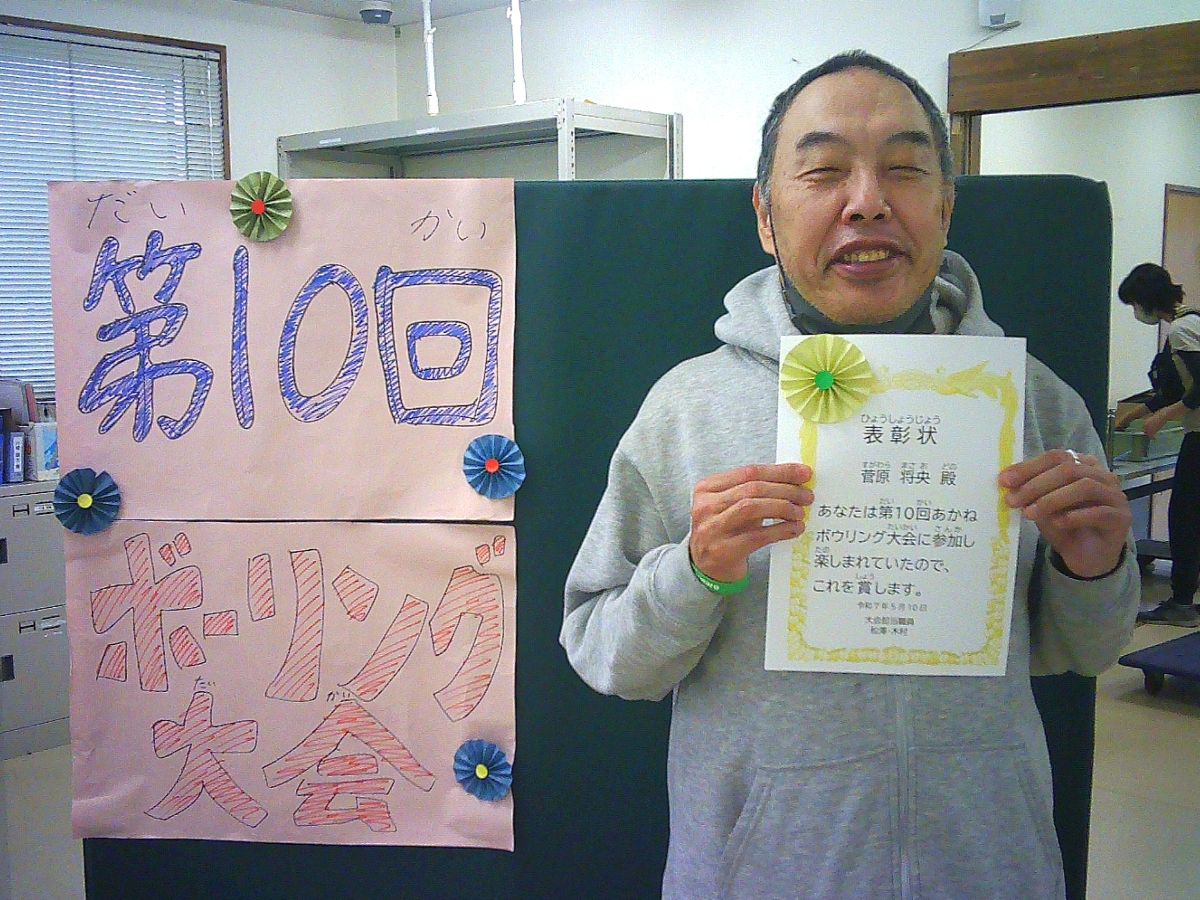 だい かい
第10回
ボーリング
たい かい
大会
ひょうしょうじょう
表彰状
すがわら まさお どの
菅原 将央 殿
だい かい
あなたは第10回あかね
たいかい さんか
ボウリング大会に参加し
たの
楽しまれていたので、
しょう
これを賞します。
令和7年5月10日
大会担当職員
松澤・木村